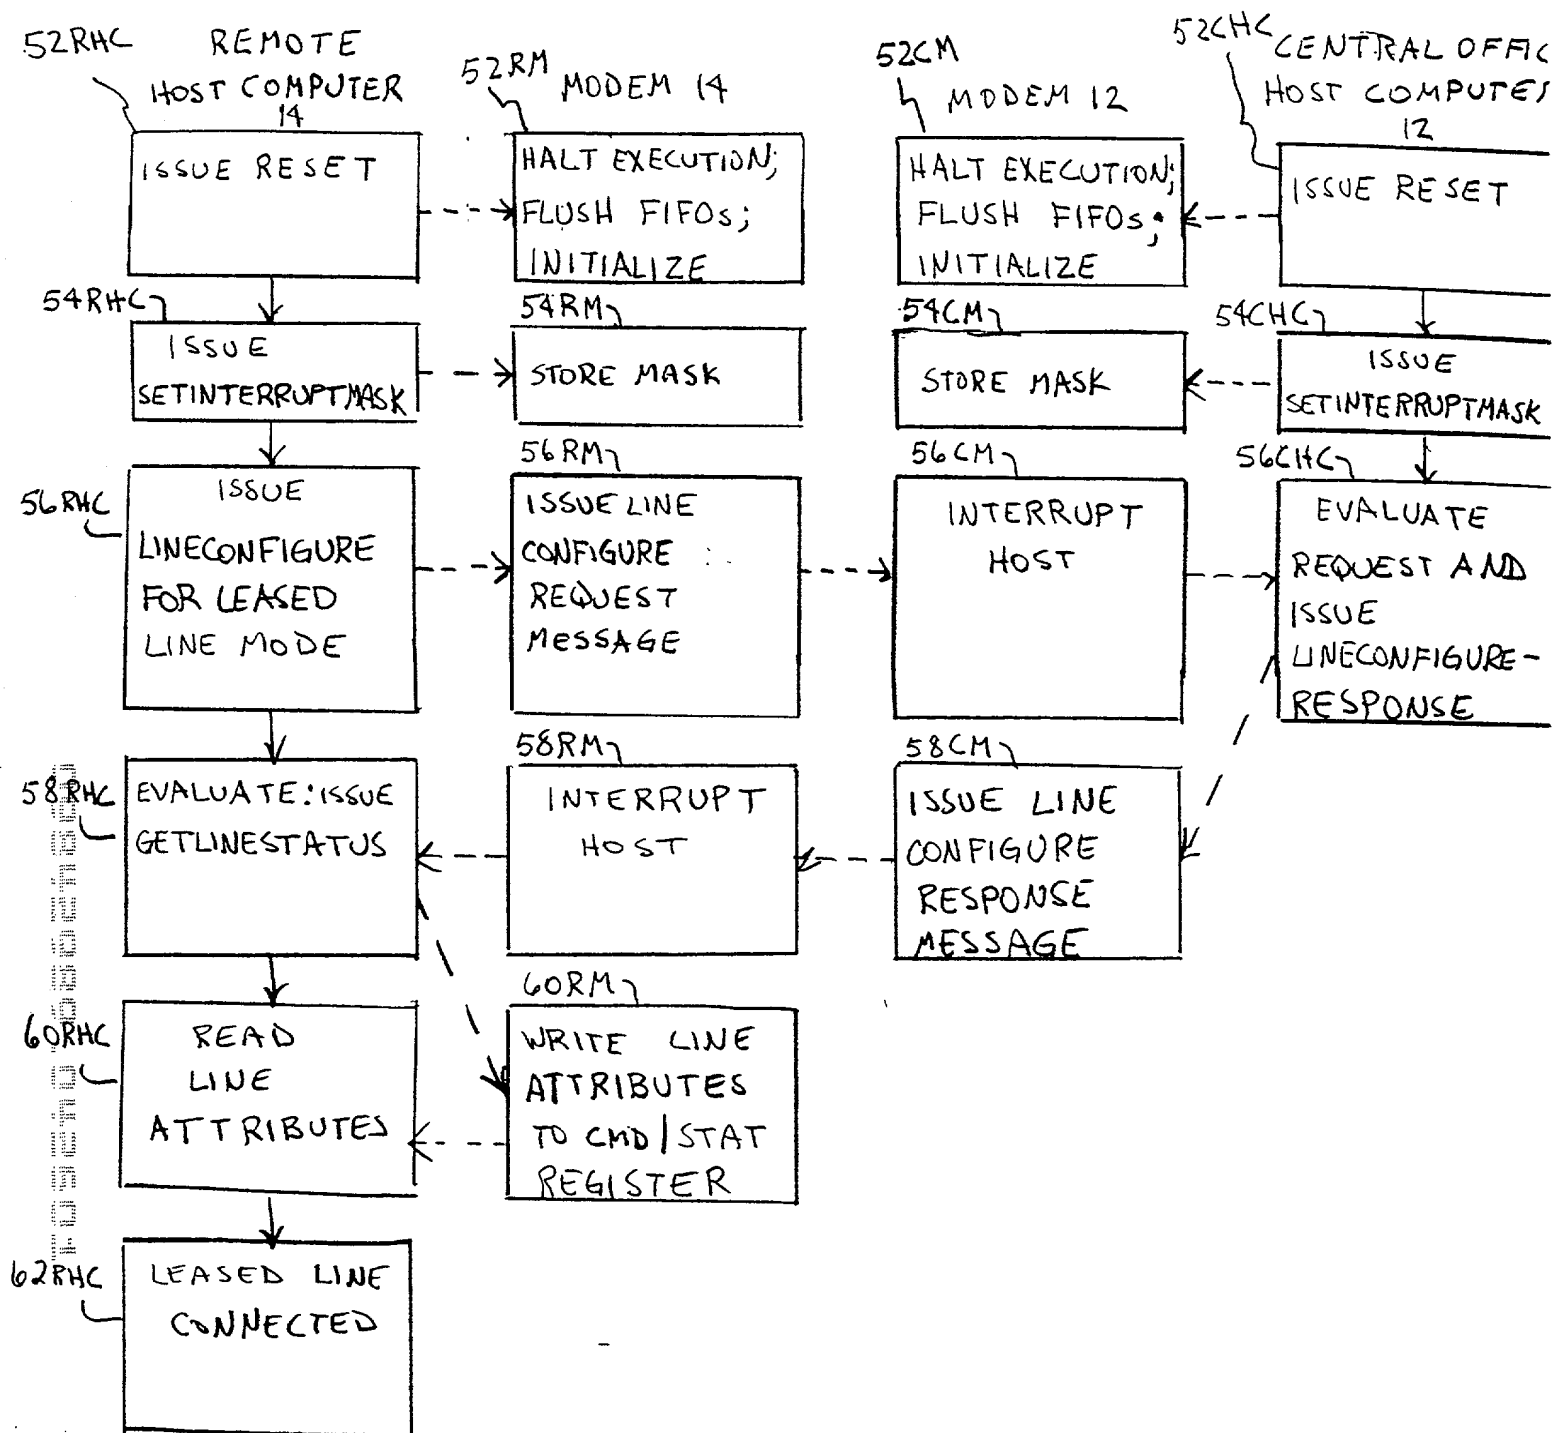 52RHC
REMOTE
HOST COMPUTER
14
52RM
MODEM 14
52CM
MODEM 12
52CHC
CENTRAL OFFIC
HOST COMPUTE
12
ISSUE RESET
HALT EXECUTION;
FLUSH FIFOs;
INITIALIZE
HALT EXECUTION;
FLUSH FIFOs;
INITIALIZE
ISSUE RESET
54RHC
ISSUE
SETINTERRUPTMASK
54RM
STORE MASK
54CM
STORE MASK
54CHC
ISSUE
SETINTERRUPTMASK
56RHC
ISSUE
LINECONFIGURE
FOR LEASED
LINE MODE
56RM
ISSUE LINE
CONFIGURE
REQUEST
MESSAGE
56CM
INTERRUPT
HOST
56CHC
EVALUATE
REQUEST AND
ISSUE
LINECONFIGURE-
RESPONSE
58RHC
EVALUATE: ISSUE
GETLINESTATUS
58RM
INTERRUPT
HOST
58CM
ISSUE LINE
CONFIGURE
RESPONSE
MESSAGE
60RHC
READ
LINE
ATTRIBUTES
60RM
WRITE LINE
ATTRIBUTES
TO CMD/STAT
REGISTER
62RHC
LEASED LINE
CONNECTED